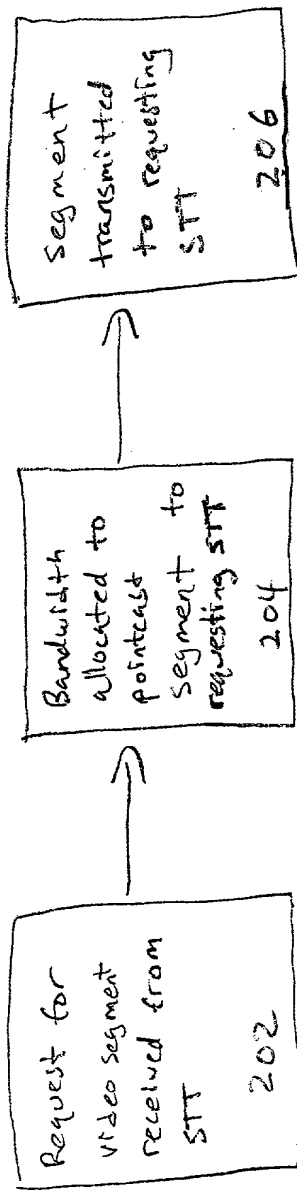 Request for
video segment
received from
STT
202
Bandwidth
allocated to
pointcast
segment to
requesting STT
204
segment
transmitted
to requesting
STT
206